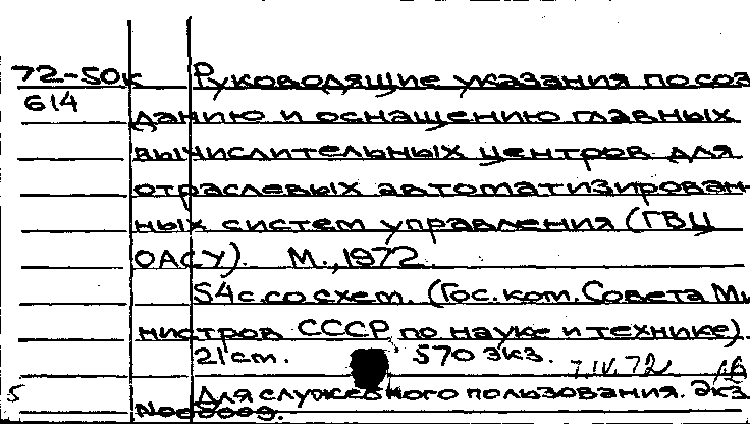 72-50к Руководящие указания по соз
614 данию и оснащению главных
вычислительных центров для
отраслевых автоматизирован
ных систем управления (ГВЦ
ОАСУ). М., 1972.
54 с. со схем. (Гос. ком. Совета Ми
нистров СССР по науке и технике).
21 см. 570 экз.
7.IV.72
5 Для служебного пользования. Экз